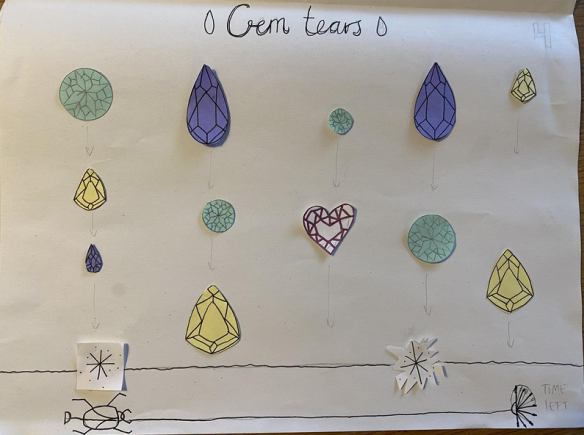 Gem tears
TIME
LEFT